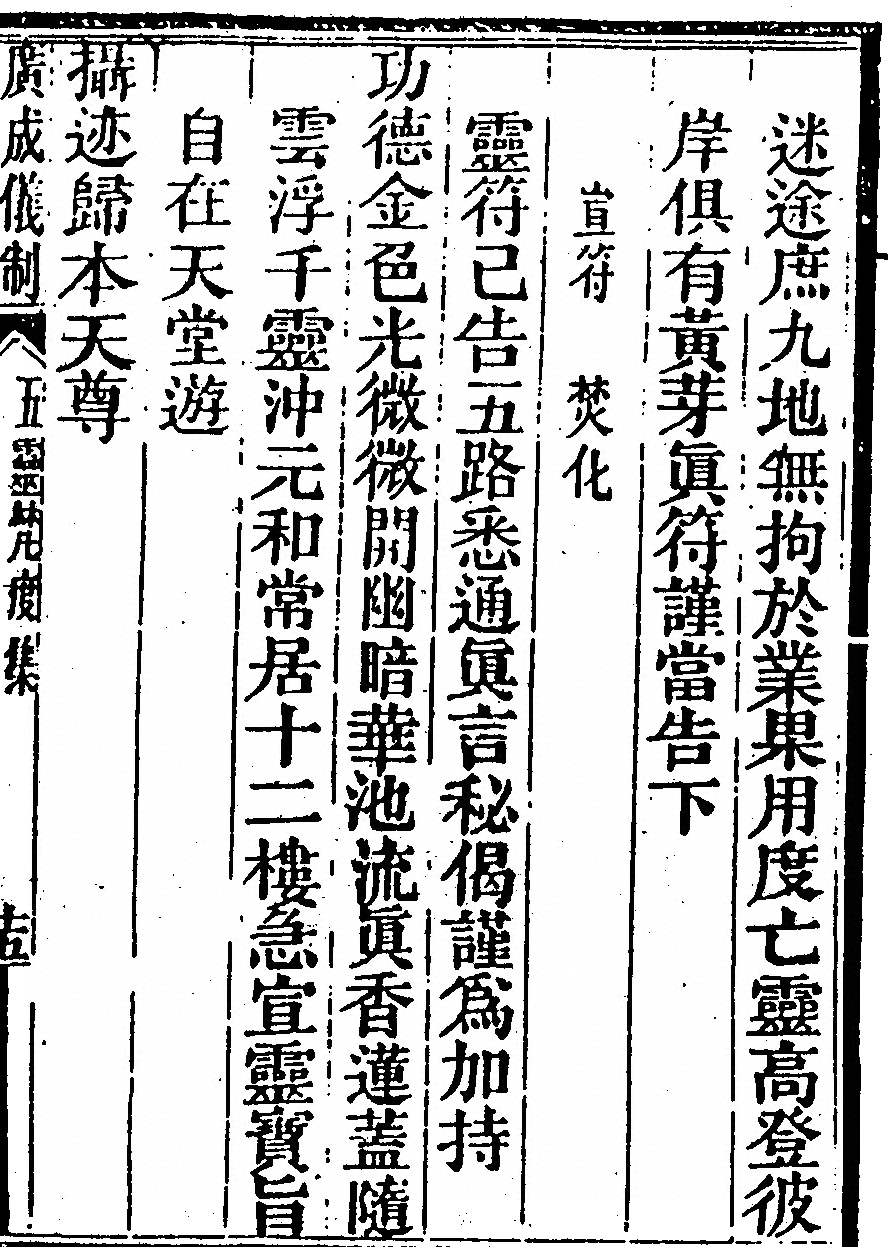 迷途庶九地無拘於業果用度亡靈高登彼
岸俱有黃芽眞符謹當告下
宣符　焚化
靈符已告五路悉通眞言秘偈謹爲加持
功德金色光微微開幽暗華池流眞香蓮蓋隨
雲浮千靈沖元和常居十二樓急宣靈寶旨
自在天堂遊
攝迹歸本天尊
廣成儀制　五靈　度集